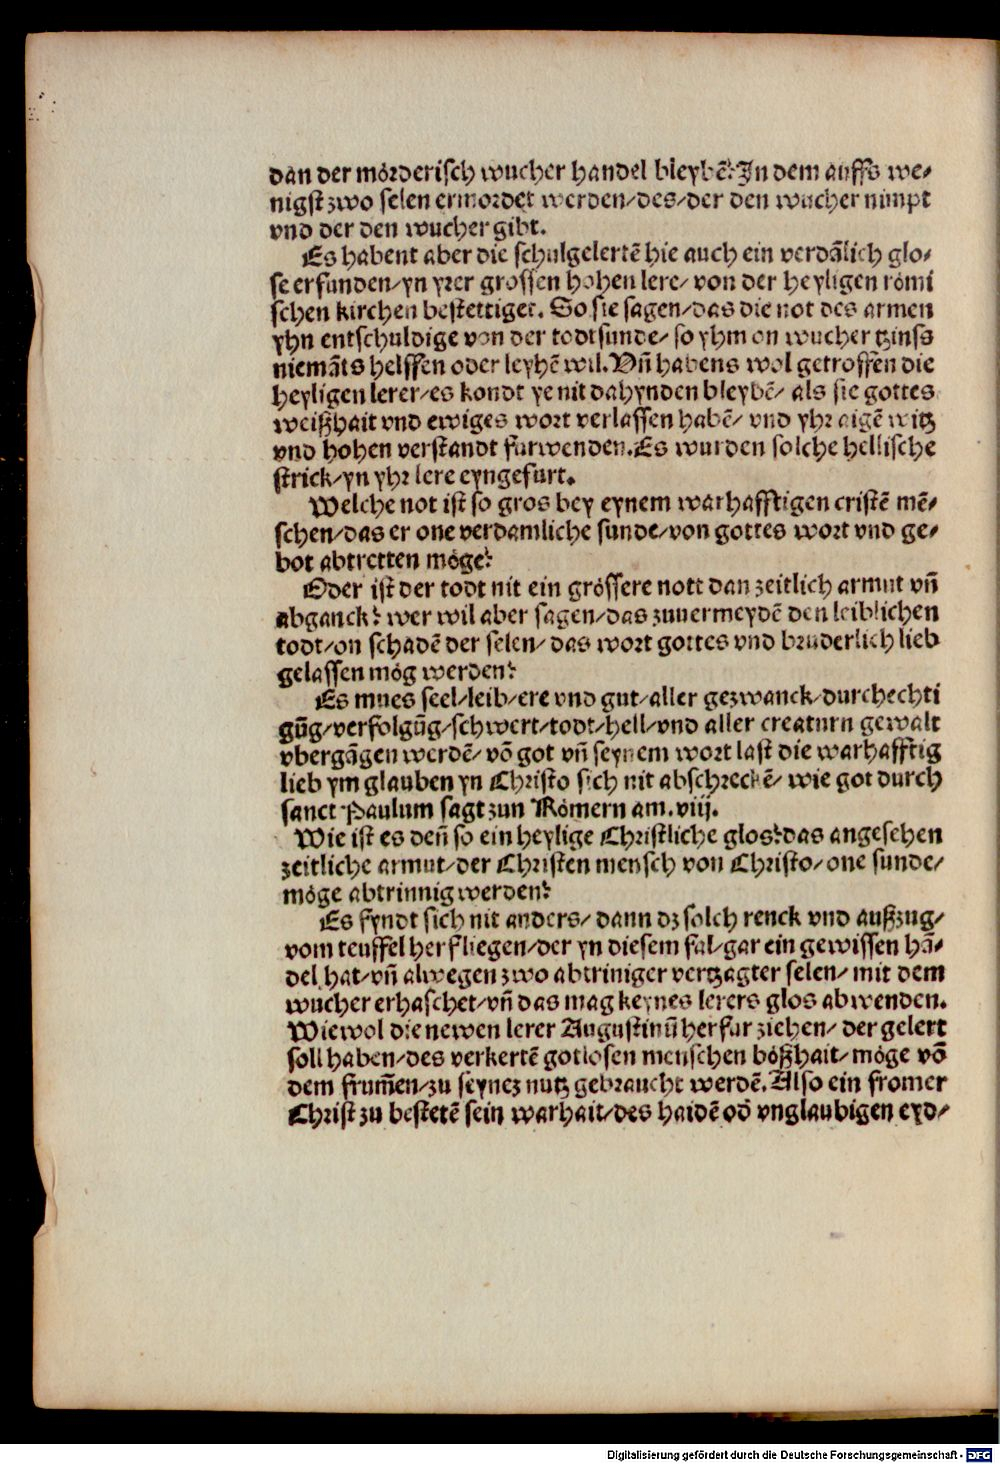 dan der mörderisch wucher handel bleybē? In dem auffs we⸗
nigst zwo selen ermordet werden/des/der den wucher nimpt
vnd der den wucher gibt.
Es habent aber die schulgelertē hie auch ein verdālich glo⸗
se erfunden/yn yrer grossen hohen lere/ von der heyligen römi
schen kirchen bestettiget. So sie sagen/das die not des armen
yhn entschuldige von der todtsunde/ so yhm on wucher tzinss
niemāts helffen oder leyhē wil. Vn̄ habens wol getroffen die
heyligen lerer/es kondt ye nit dahynden bleybē/ als sie gottes
weißhait vnd ewiges wort verlassen habē/ vnd yhr aigē witz
vnd hohen verstandt furwenden. Es wurden solche hellische
strick/yn yhr lere eyngefurt.
Welche not ist so gros bey eynem warhafftigen cristē mē⸗
schen/das er one verdamliche sunde/von gottes wort vnd ge⸗
bot abtretten möge?
Oder ist der todt nit ein grössere nott dan zeitlich armut vn̄
abganck? wer wil aber sagen/das zuuermeydē den leiblichen
todt/on schadē der selen/ das wort gottes vnd bruderlich lieb
gelassen mög werden?
Es mues seel/leib/ere vnd gut/aller gezwanck/durchechti
gūg/verfolgūg/schwert/todt/hell/vnd aller creaturn gewalt
vbergāgen werdē/ vō got vn̄ seynem wort last die warhafftig
lieb ym glauben yn Christo sich nit abschreckē/ wie got durch
sanct Paulum sagt zun Römern am. viij.
Wie ist es den̄ so ein heylige Christliche glos? das angesehen
zeitliche armut/der Christen mensch von Christo/one sunde/
möge abtrinnig werden?
Es fyndt sich nit anders/ dann dz solch renck vnd außzug/
vom teuffel her fliegen/der yn diesem fal/gar ein gewissen hā⸗
del hat/vn̄ alwegen zwo abtriniger vertzagter selen/ mit dem
wucher erhaschet/vn̄ das mag keynes lerers glos abwenden.
Wiewol die newen lerer Augustinū herfur ziehen/ der gelert
soll haben/des verkertē gotlosen menschen bößhait/ möge vō
dem frum̄en/zu seynez nutz gebraucht werdē. Also ein fromer
Christ zu bestetē sein warhait/des haidē od̄ vnglaubigen eyd⸗
Digitalisierung gefördert durch die Deutsche Forschungsgemeinschaft - DFG